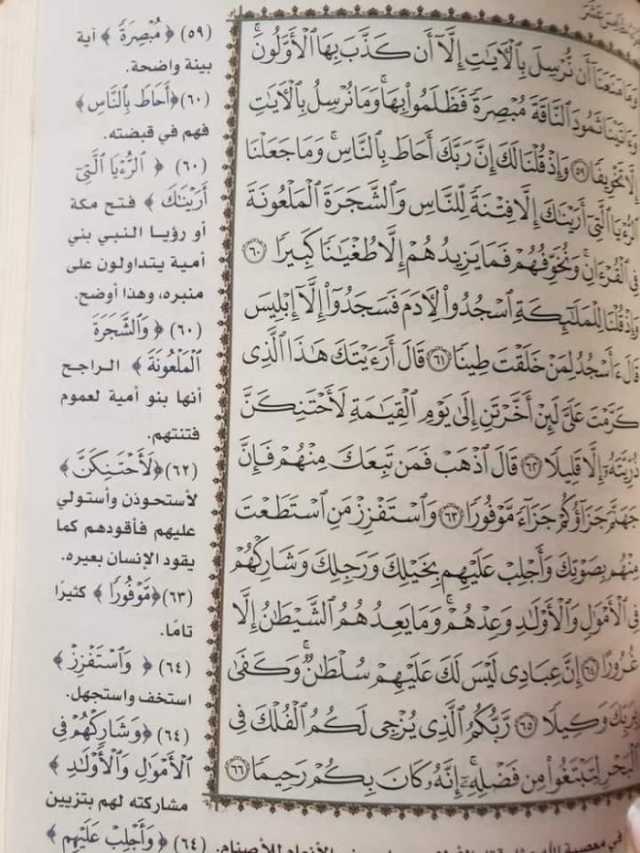 وَمَا مَنَعَنَا أَن نُّرْسِلَ بِالْآيَاتِ إِلَّا أَن كَذَّبَ بِهَا الْأَوَّلُونَ ۚ
وَءَاتَيْنَا ثَمُودَ النَّاقَةَ مُبْصِرَةً فَظَلَمُوا بِهَا ۚ وَمَا نُرْسِلُ بِالْآيَاتِ
إِلَّا تَخْوِيفًا ٥٩ وَإِذْ قُلْنَا لَكَ إِنَّ رَبَّكَ أَحَاطَ بِالنَّاسِ ۚ وَمَا جَعَلْنَا
الرُّءْيَا الَّتِي أَرَيْنَاكَ إِلَّا فِتْنَةً لِّلنَّاسِ وَالشَّجَرَةَ الْمَلْعُونَةَ
فِي الْقُرْءَانِ ۚ وَنُخَوِّفُهُمْ فَمَا يَزِيدُهُمْ إِلَّا طُغْيَانًا كَبِيرًا ٦٠
وَإِذْ قُلْنَا لِلْمَلَائِكَةِ اسْجُدُوا لِآدَمَ فَسَجَدُوا إِلَّا إِبْلِيسَ
قَالَ ءَأَسْجُدُ لِمَنْ خَلَقْتَ طِينًا ٦١ قَالَ أَرَءَيْتَكَ هَٰذَا الَّذِي
كَرَّمْتَ عَلَيَّ لَئِنْ أَخَّرْتَنِ إِلَىٰ يَوْمِ الْقِيَامَةِ لَأَحْتَنِكَنَّ
ذُرِّيَّتَهُ إِلَّا قَلِيلًا ٦٢ قَالَ اذْهَبْ فَمَن تَبِعَكَ مِنْهُمْ فَإِنَّ
جَهَنَّمَ جَزَاؤُكُمْ جَزَاءً مَّوْفُورًا ٦٣ وَاسْتَفْزِزْ مَنِ اسْتَطَعْتَ
مِنْهُم بِصَوْتِكَ وَأَجْلِبْ عَلَيْهِم بِخَيْلِكَ وَرَجِلِكَ وَشَارِكْهُمْ
فِي الْأَمْوَالِ وَالْأَوْلَادِ وَعِدْهُمْ ۚ وَمَا يَعِدُهُمُ الشَّيْطَانُ إِلَّا
غُرُورًا ٦٤ إِنَّ عِبَادِي لَيْسَ لَكَ عَلَيْهِمْ سُلْطَانٌ ۚ وَكَفَىٰ
بِرَبِّكَ وَكِيلًا ٦٥ رَّبُّكُمُ الَّذِي يُزْجِي لَكُمُ الْفُلْكَ فِي
الْبَحْرِ لِتَبْتَغُوا مِن فَضْلِهِ ۚ إِنَّهُ كَانَ بِكُمْ رَحِيمًا ٦٦
(٥٩) ﴿ مُبْصِرَةً ﴾ آية
بينة واضحة.
(٦٠) ﴿أَحَاطَ بِالنَّاسِ﴾
فهم في قبضته.
(٦٠) ﴿ الرُّءْيَا الَّتِي
أَرَيْنَاكَ ﴾ فتح مكة
أو رؤيا النبي بني
أمية يتداولون على
منبره، وهذا أوضح.
(٦٠) ﴿ وَالشَّجَرَةَ
الْمَلْعُونَةَ ﴾ الراجح
أنها بنو أمية لعموم
فتنتهم.
(٦٢) ﴿لَأَحْتَنِكَنَّ﴾
لأستحوذن وأستولي
عليهم فأقودهم كما
يقود الإنسان بعيره.
(٦٣) ﴿مَوْفُورًا ﴾ كثيرًا
تامًا.
(٦٤) ﴿ وَاسْتَفْزِزْ ﴾
استخف واستجهل.
(٦٤) ﴿وَشَارِكْهُمْ فِي
الْأَمْوَالِ وَالْأَوْلَادِ ﴾
مشاركته لهم بتزيين
(٦٤) ﴿ وَأَجْلِبْ عَلَيْهِم ﴾